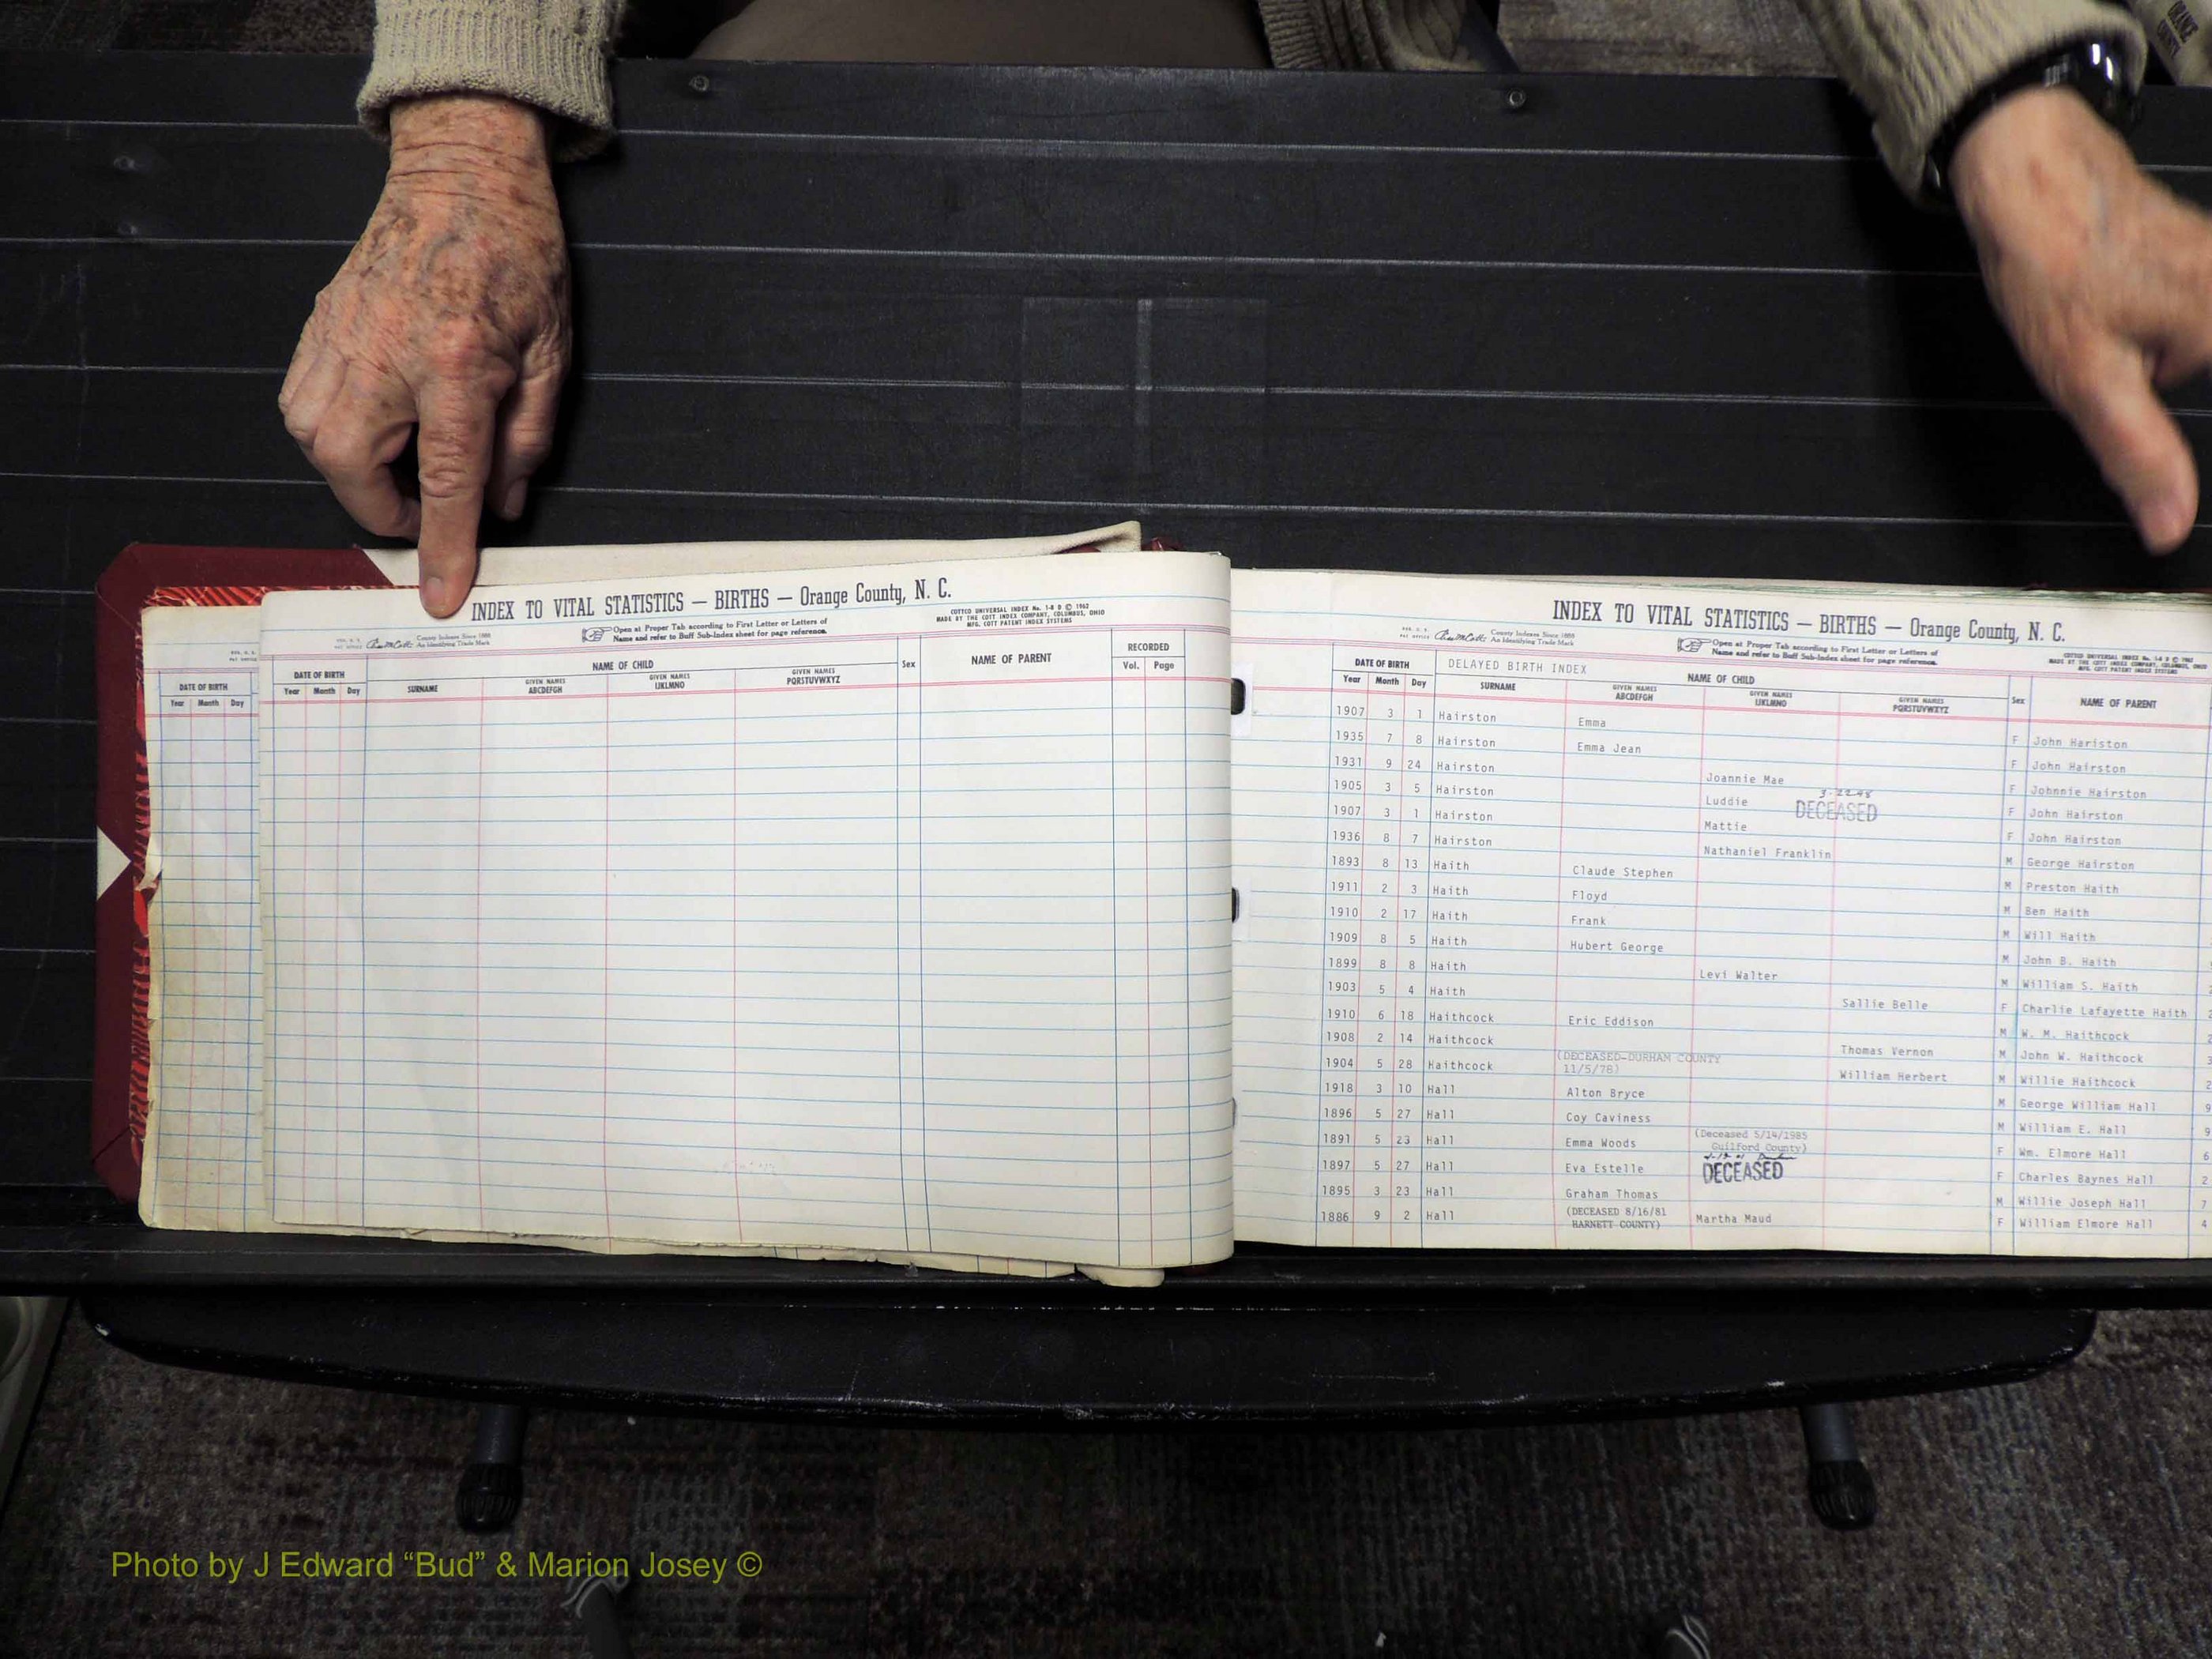 INDEX TO VITAL STATISTICS — BIRTHS — Orange County, N. C.
County Indexes Since 1888
An Identifying Trade Mark
Open at Proper Tab according to First Letter or Letters of
Name and refer to Buff Sub-Index sheet for page reference.
COTTCO UNIVERSAL INDEX No. 1-8 D © 1962
MADE BY THE COTT INDEX COMPANY, COLUMBUS, OHIO
MFG. COTT PATENT INDEX SYSTEMS
DATE OF BIRTH
Year Month Day
DATE OF BIRTH NAME OF CHILD Sex NAME OF PARENT RECORDED
Year Month Day SURNAME GIVEN NAMES ABCDEFGH GIVEN NAMES IJKLMNO GIVEN NAMES PQRSTUVWXYZ Vol. Page
INDEX TO VITAL STATISTICS — BIRTHS — Orange County, N. C.
County Indexes Since 1888
An Identifying Trade Mark
Open at Proper Tab according to First Letter or Letters of
Name and refer to Buff Sub-Index sheet for page reference.
DATE OF BIRTH DELAYED BIRTH INDEX NAME OF CHILD
Year Month Day SURNAME GIVEN NAMES ABCDEFGH GIVEN NAMES IJKLMNO GIVEN NAMES PQRSTUVWXYZ Sex NAME OF PARENT
1907 3 1 Hairston Emma F John Hariston
1935 7 8 Hairston Emma Jean F John Hairston
1931 9 24 Hairston Joannie Mae F Johnnie Hairston
1905 3 5 Hairston Luddie DECEASED F John Hairston
1907 3 1 Hairston Mattie F John Hairston
1936 8 7 Hairston Nathaniel Franklin M George Hairston
1893 8 13 Haith Claude Stephen M Preston Haith
1911 2 3 Haith Floyd M Ben Haith
1910 2 17 Haith Frank M Will Haith
1909 8 5 Haith Hubert George M John B. Haith
1899 8 8 Haith Levi Walter M William S. Haith
1903 5 4 Haith Sallie Belle F Charlie Lafayette Haith
1910 6 18 Haithcock Eric Eddison M W. M. Haithcock
1908 2 14 Haithcock Thomas Vernon M John W. Haithcock
1904 5 28 Haithcock (DECEASED-DURHAM COUNTY 11/5/78) William Herbert M Willie Haithcock
1918 3 10 Hall Alton Bryce M George William Hall
1896 5 27 Hall Coy Caviness M William E. Hall
1891 5 23 Hall Emma Woods (Deceased 5/14/1985 Guilford County) F Wm. Elmore Hall
1897 5 27 Hall Eva Estelle DECEASED F Charles Baynes Hall
1895 3 23 Hall Graham Thomas M Willie Joseph Hall
1886 9 2 Hall (DECEASED 8/16/81 HARNETT COUNTY) Martha Maud F William Elmore Hall
Photo by J Edward “Bud” & Marion Josey ©